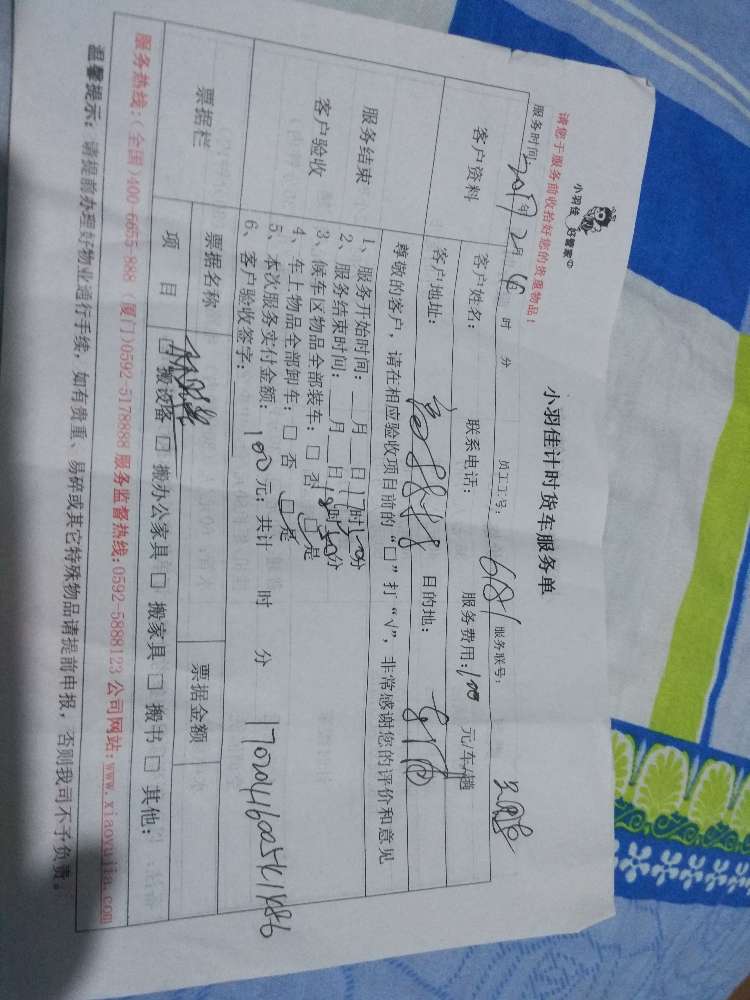 小羽佳 好管家
请您于服务前收拾好您的贵重物品！
小羽佳计时货车服务单
服务时间：2017年2月16 时 分 员工工号：681 服务联号：
客户资料 客户姓名： 联系电话： 服务费用：100 元/车/趟
客户地址： 目的地：
服务结束 客户验收
尊敬的客户，请在相应验收项目前的“□”打“√”，非常感谢您的评价和意见
1、服务开始时间：__月__日17时10分
2、服务结束时间：__月__日18时50分
3、候车区物品全部装车：□ 否 □ 是
4、车上物品全部卸车：□ 否 □ 是
5、本次服务实付金额：100元；共计 时 分
6、客户验收签字：
票据栏 票据名称 票据金额
项目 □ 搬设备 □ 搬办公家具 □ 搬家具 □ 搬书 □ 其他：
服务热线：(全国)400-6655-888 (厦门)0592-5178888 服务监督热线：0592-5888123 公司网站：www.xiaoyujia.com
温馨提示：请提前办理好物业通行手续，如有贵重、易碎或其它特殊物品请提前申报，否则我司不予负责。